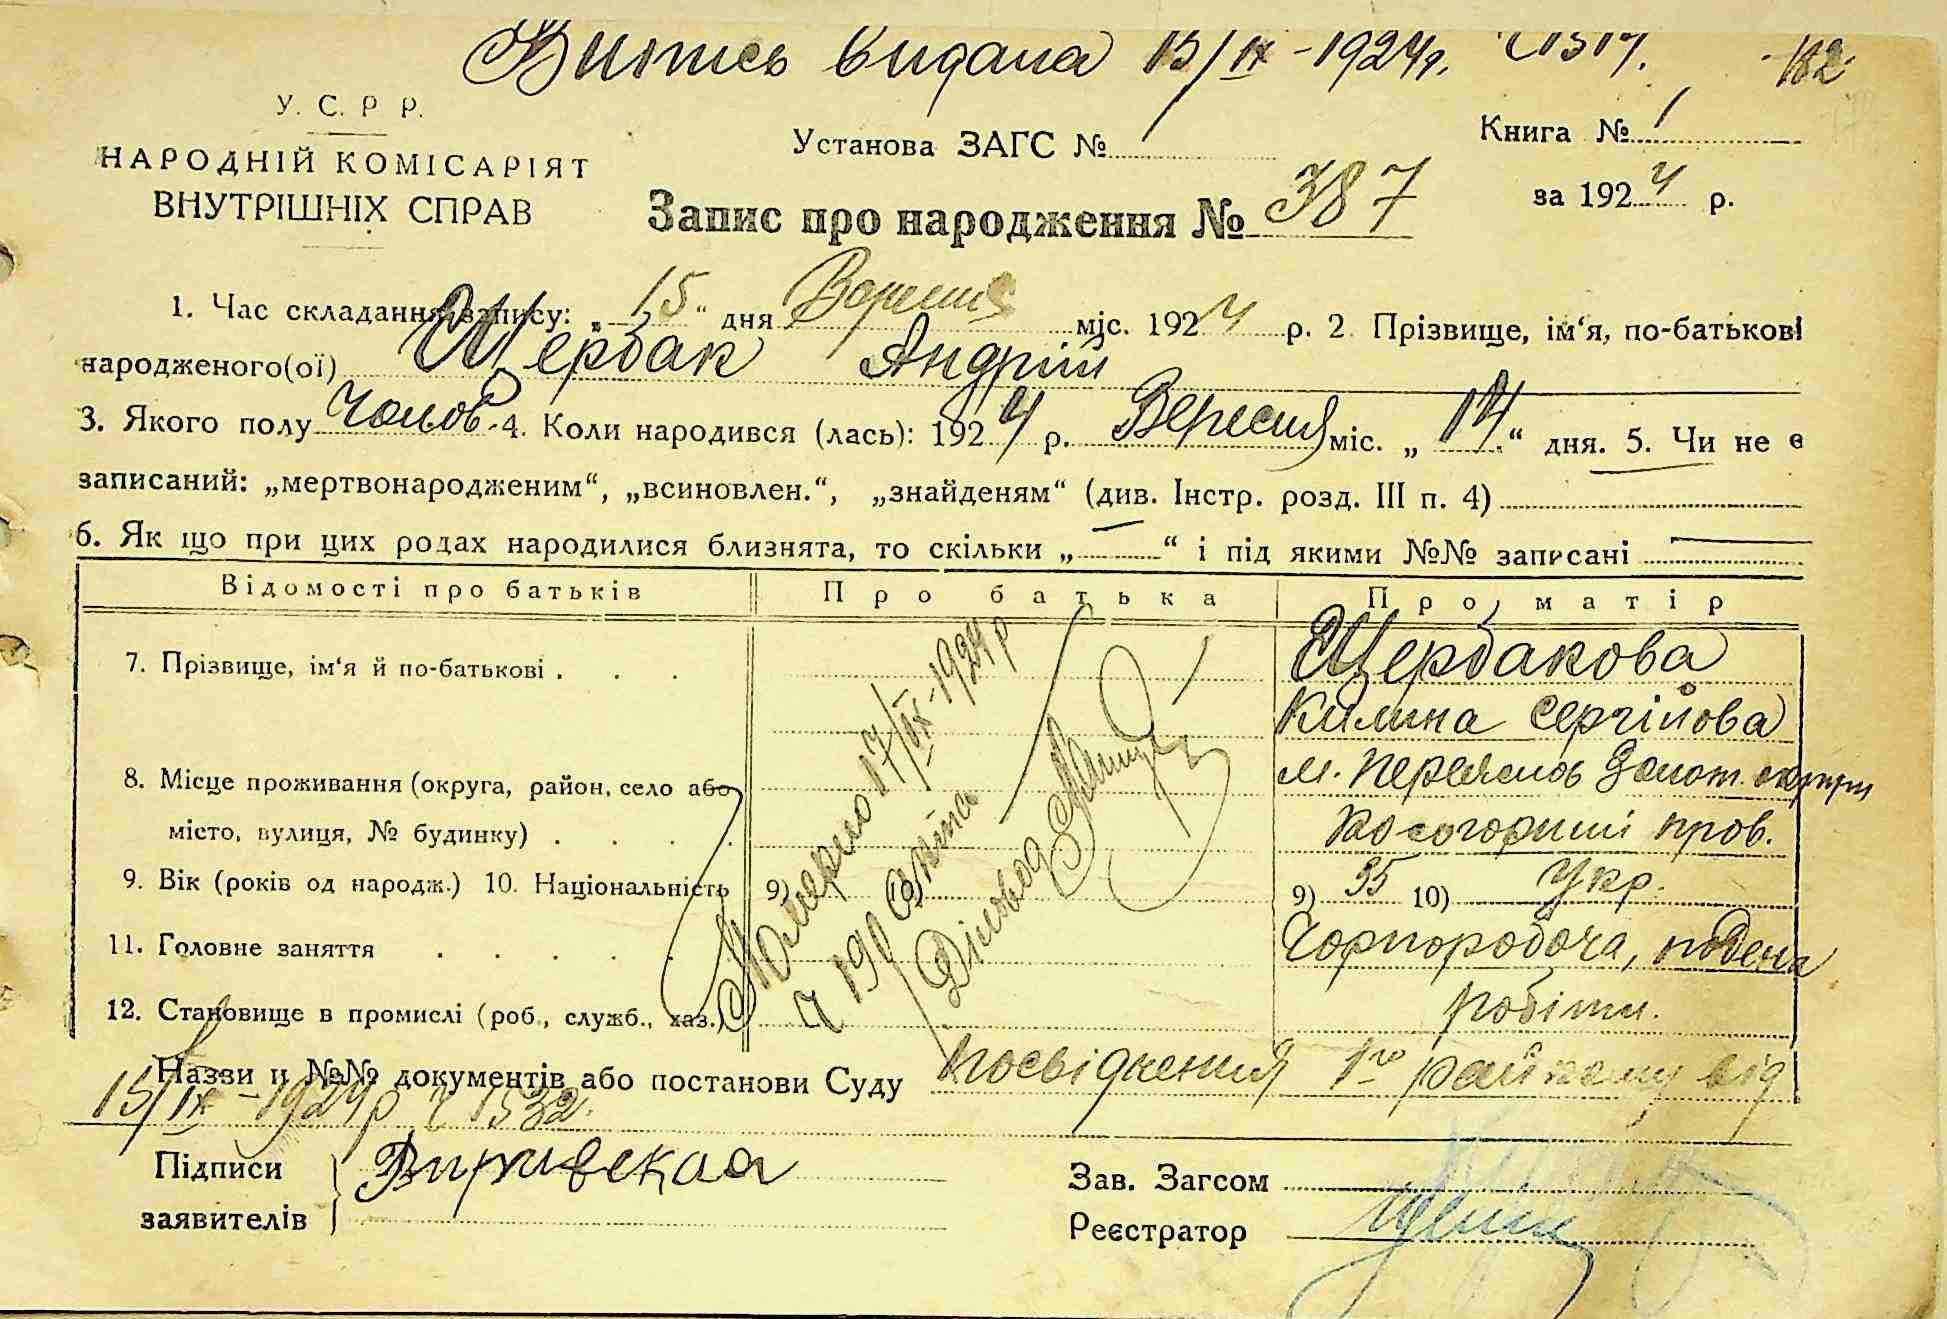 Випись видана 15/IX-1924р. 182
У. С. Р Р.
НАРОДНІЙ КОМІСАРІЯТ
ВНУТРІШНІХ СПРАВ
Установа ЗАГС № 1
Книга № 1
за 1924 р.
Запис про народження № 387
1. Час складання запису: „ 15 " дня Вересня міс. 1924 р. 2 Прізвище, ім‘я, по-батькові
народженого(ої) Щербак Андрій
3. Якого полу чолов. 4. Коли народився (лась): 1924 р. Вересня міс. „ 14 “ дня. 5. Чи не є
записаний: „мертвонародженим“, „всиновлен.“, „знайденям“ (див. Інстр. розд. III п. 4)
6. Як що при цих родах народилися близнята, то скільки „ — “ і під якими №№ записані —
Відомості про батьків Про батька Про матір
7. Прізвище, ім‘я й по-батькові . . . Щербакова
Килина Сергійова
8. Місце проживання (округа, район, село або м. Переяслов Золот. округи
місто, вулиця, № будинку) . . . . пров.
9. Вік (років од народж.) 10. Національність 9) 9) 35 10) Укр.
11. Головне заняття . . . . . Чорноробоча, поденна
12. Становище в промислі (роб., служб., хаз.) робітн.
Померло 17/IX-1924р
ч 190 смерть
Діловод
Назви и №№ документів або постанови Суду посвідчення 1го райкому від
15/IX-1924р ч 1532.
Підписи
заявителів
Зав. Загсом
Реєстратор